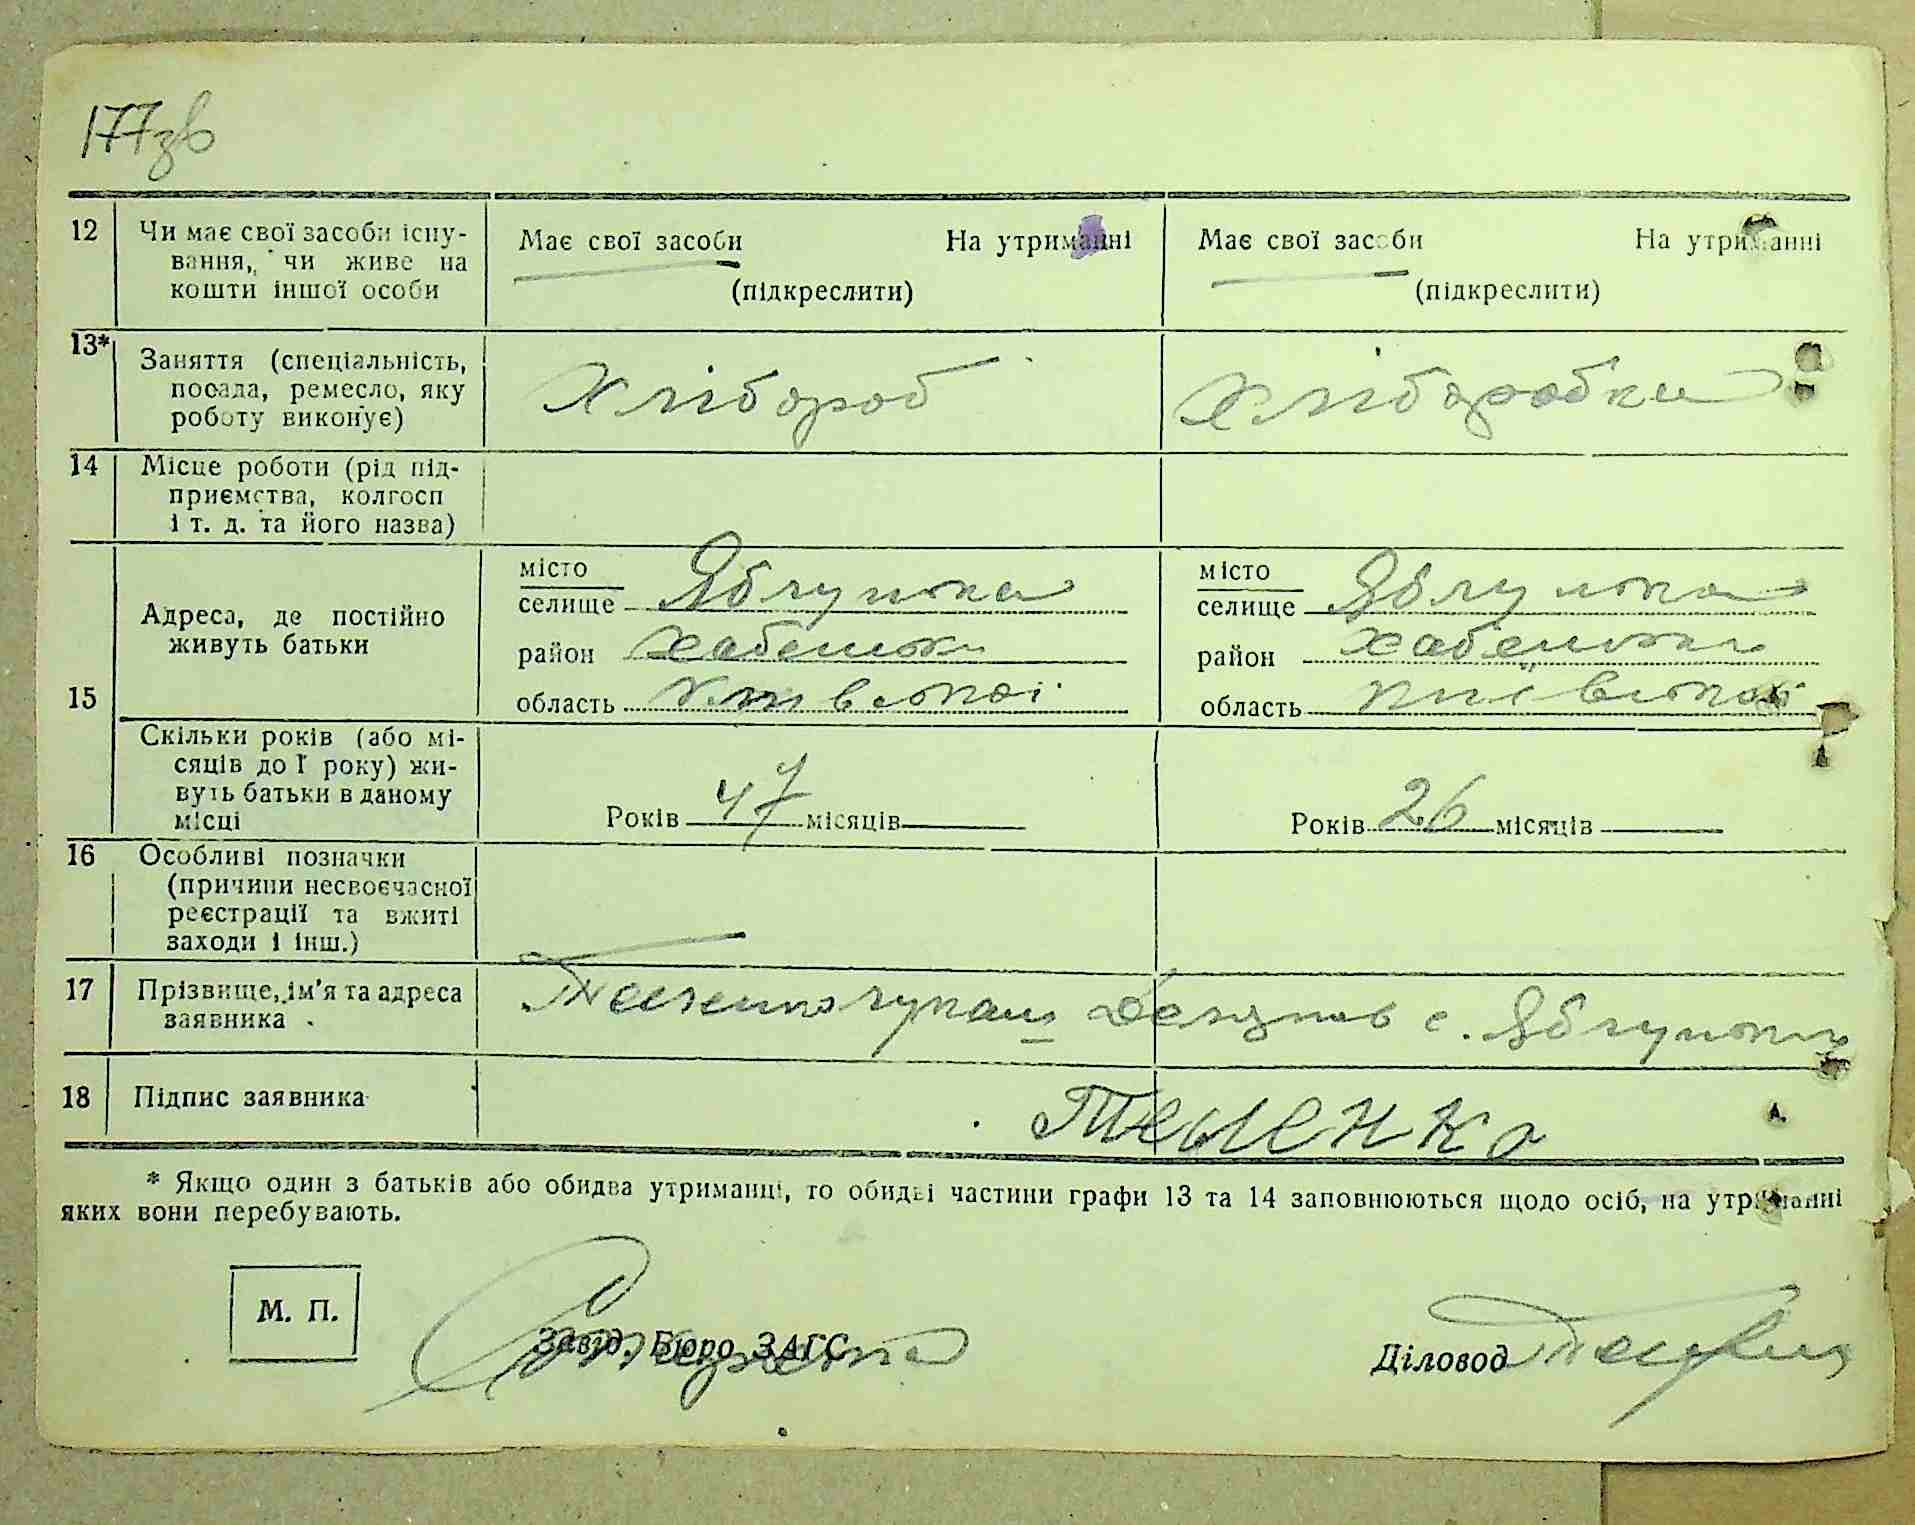 177зв
12 Чи має свої засоби існу- Має свої засоби На утриманні Має свої засоби На утриманні
вання, чи живе на
кошти іншої особи (підкреслити) (підкреслити)
13* Заняття (спеціальність,
посада, ремесло, яку Хлібороб Хліборобка
роботу виконує)
14 Місце роботи (рід під-
приємства, колгосп
і т. д. та його назва)
місто місто
селище Яблунька селище Яблунька
Адреса, де постійно
живуть батьки район район
15 область область
Скільки років (або мі-
сяців до 1 року) жи-
вуть батьки в даному
місці Років 47 місяців Років 26 місяців
16 Особливі позначки
(причини несвоєчасної
реєстрації та вжиті
заходи і інш.)
17 Прізвище, ім'я та адреса
заявника с.
18 Підпис заявника
* Якщо один з батьків або обидва утриманці, то обидві частини графи 13 та 14 заповнюються щодо осіб, на утриманні
яких вони перебувають.
М. П.
Завід. Бюро ЗАГС
Діловод